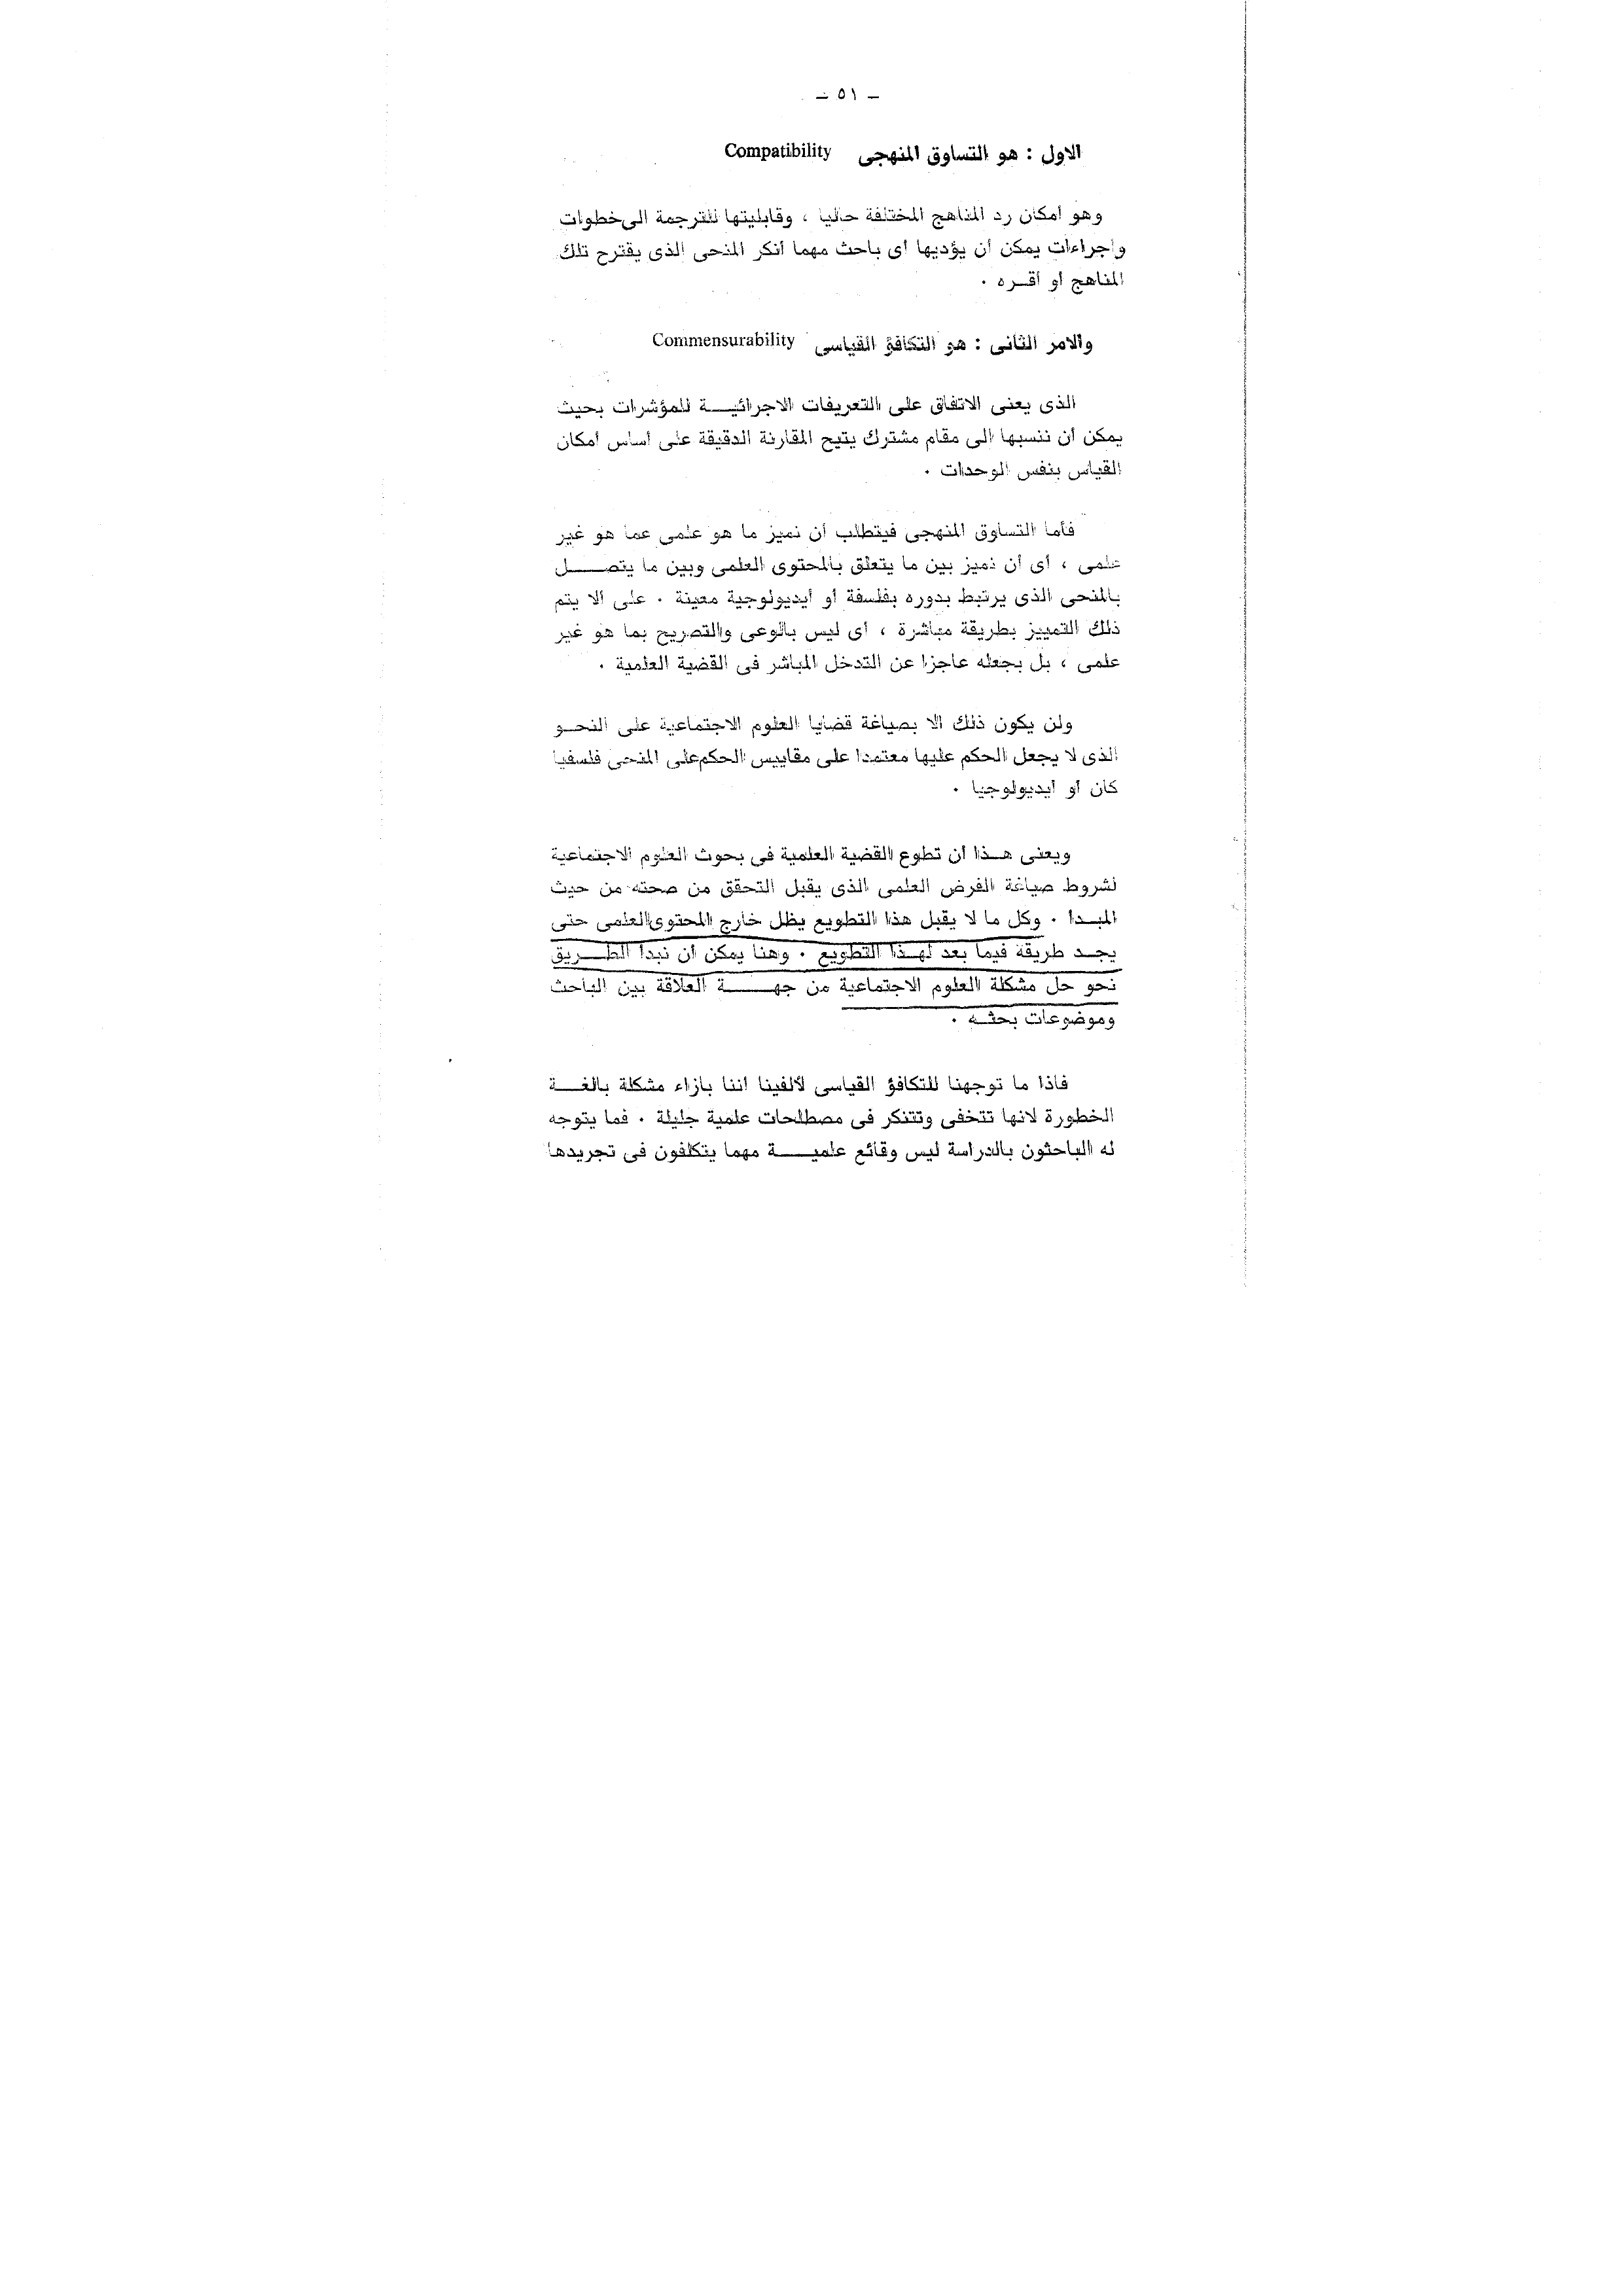 ـ ٥١ ـ
الاول : هو التساوق المنهجى Compatibility
وهو امكان رد المناهج المختلفة حاليا ، وقابليتها للترجمة الى خطوات
واجراءات يمكن أن يؤديها اى باحث مهما أنكر المنحى الذى يقترح تلك
المناهج او اقـــره ٠
والامر الثانى : هو التكافؤ القياسى Commensurability
الذى يعنى الاتفاق على التعريفات الاجرائيـــة للمؤشرات بحيث
يمكن أن ننسبها الى مقام مشترك يتيح المقارنة الدقيقة على أساس امكان
القياس بنفس الوحدات ٠
فأما التساوق المنهجى فيتطلب أن نميز ما هو علمى عما هو غير
علمى ، أى أن نميز بين ما يتعلق بالمحتوى العلمى وبين ما يتصـــل
بالمنحى الذى يرتبط بدوره بفلسفة أو ايديولوجية معينة ٠ على الا يتم
ذلك التمييز بطريقة مباشرة ، اى ليس بالوعى والتصريح بما هو غير
علمى ، بل بجعله عاجزا عن التدخل المباشر فى القضية العلمية ٠
ولن يكون ذلك الا بصياغة قضايا العلوم الاجتماعية على النحــو
الذى لا يجعل الحكم عليها معتمدا على مقاييس الحكم على المنحى فلسفيا
كان أو ايديولوجيا ٠
ويعنى هــذا ان تطوع القضية العلمية فى بحوث العلوم الاجتماعية
لشروط صياغة الفرض العلمى الذى يقبل التحقق من صحته من حيث
المبــدا ٠ وكل ما لا يقبل هذا التطويع يظل خارج المحتوى العلمى حتى
يجــد طريقة فيما بعد لهــذا التطويع ٠ وهنا يمكن ان نبدا الطـــريق
نحو حل مشكلة العلوم الاجتماعية من جهـــة العلاقة بين الباحث
وموضوعات بحثــه ٠
فاذا ما توجهنا للتكافؤ القياسى لألفينا اننا بازاء مشكلة بالغـــة
الخطورة لانها تتخفى وتتنكر فى مصطلحات علمية جليلة ٠ فما يتوجه
له الباحثون بالدراسة ليس وقائع علميـــة مهما يتكلفون فى تجريدها